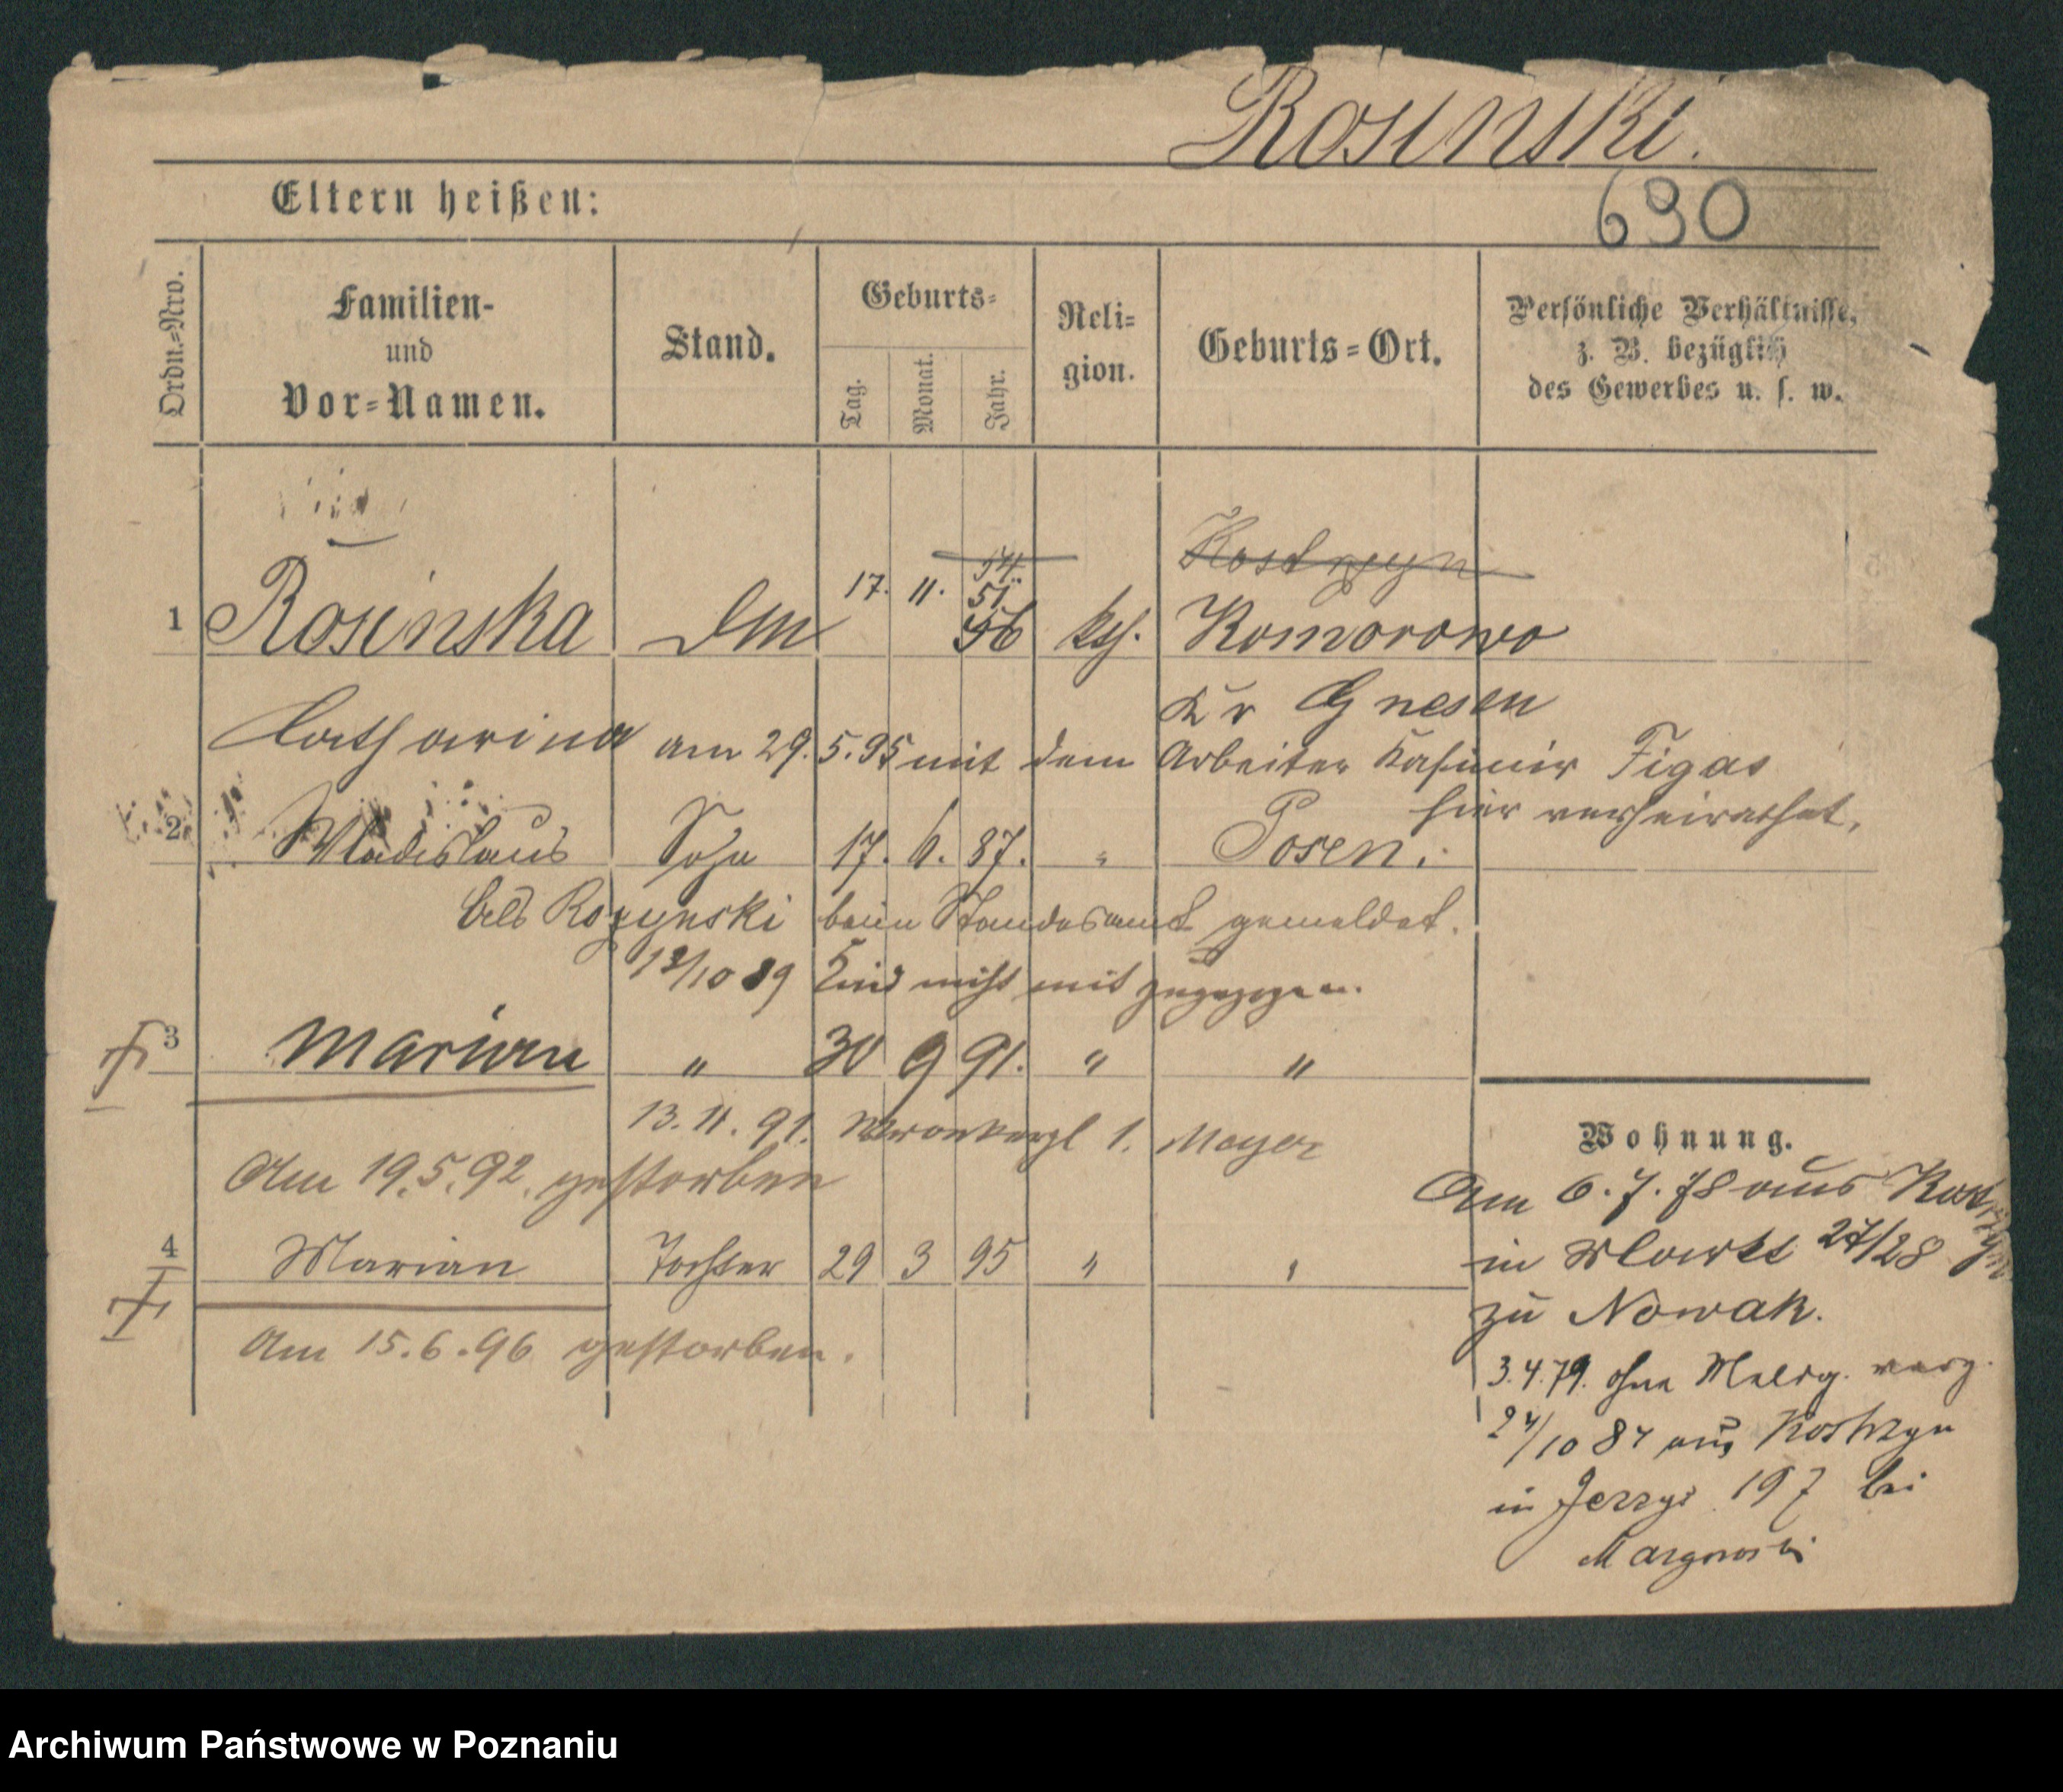 Rosinski.
Eltern heißen:
690
Ordn.=Nro.
Familien-
und
Vor=Namen.
Stand.
Geburts=
Tag.
Monat.
Jahr.
Reli=
gion.
Geburts=Ort.
Persönliche Verhältnisse,
z. B. bezüglich
des Gewerbes u. s. w.
54.
Kostrzyn
17. 11. 51.
1 Rosinska 56 kth. Komorowo
Kr Gnesen
Catharina am 29.5.95 mit dem Arbeiter Kasimir Figas
hier verheirathet.
2 Wladislaus Sohn 17. 6. 87. " Posen.
als Rozynski beim Standesamt gemeldet.
/10 89 Kind nicht mit zugezogen.
3 Marian " 30 9 91. " "
13. 11. 91. 1. Mayer
Am 19.5.92. gestorben
4 Marian Tochter 29 3 95 " "
Am 15.6.96 gestorben.
Wohnung.
Am 6.7.78 aus
in 27/28
zu Nowak.
3.4.79. ohne Meldg. verz.
24/10 87 aus Kostrzyn
in Jerzyc 197 bei
Archiwum Państwowe w Poznaniu